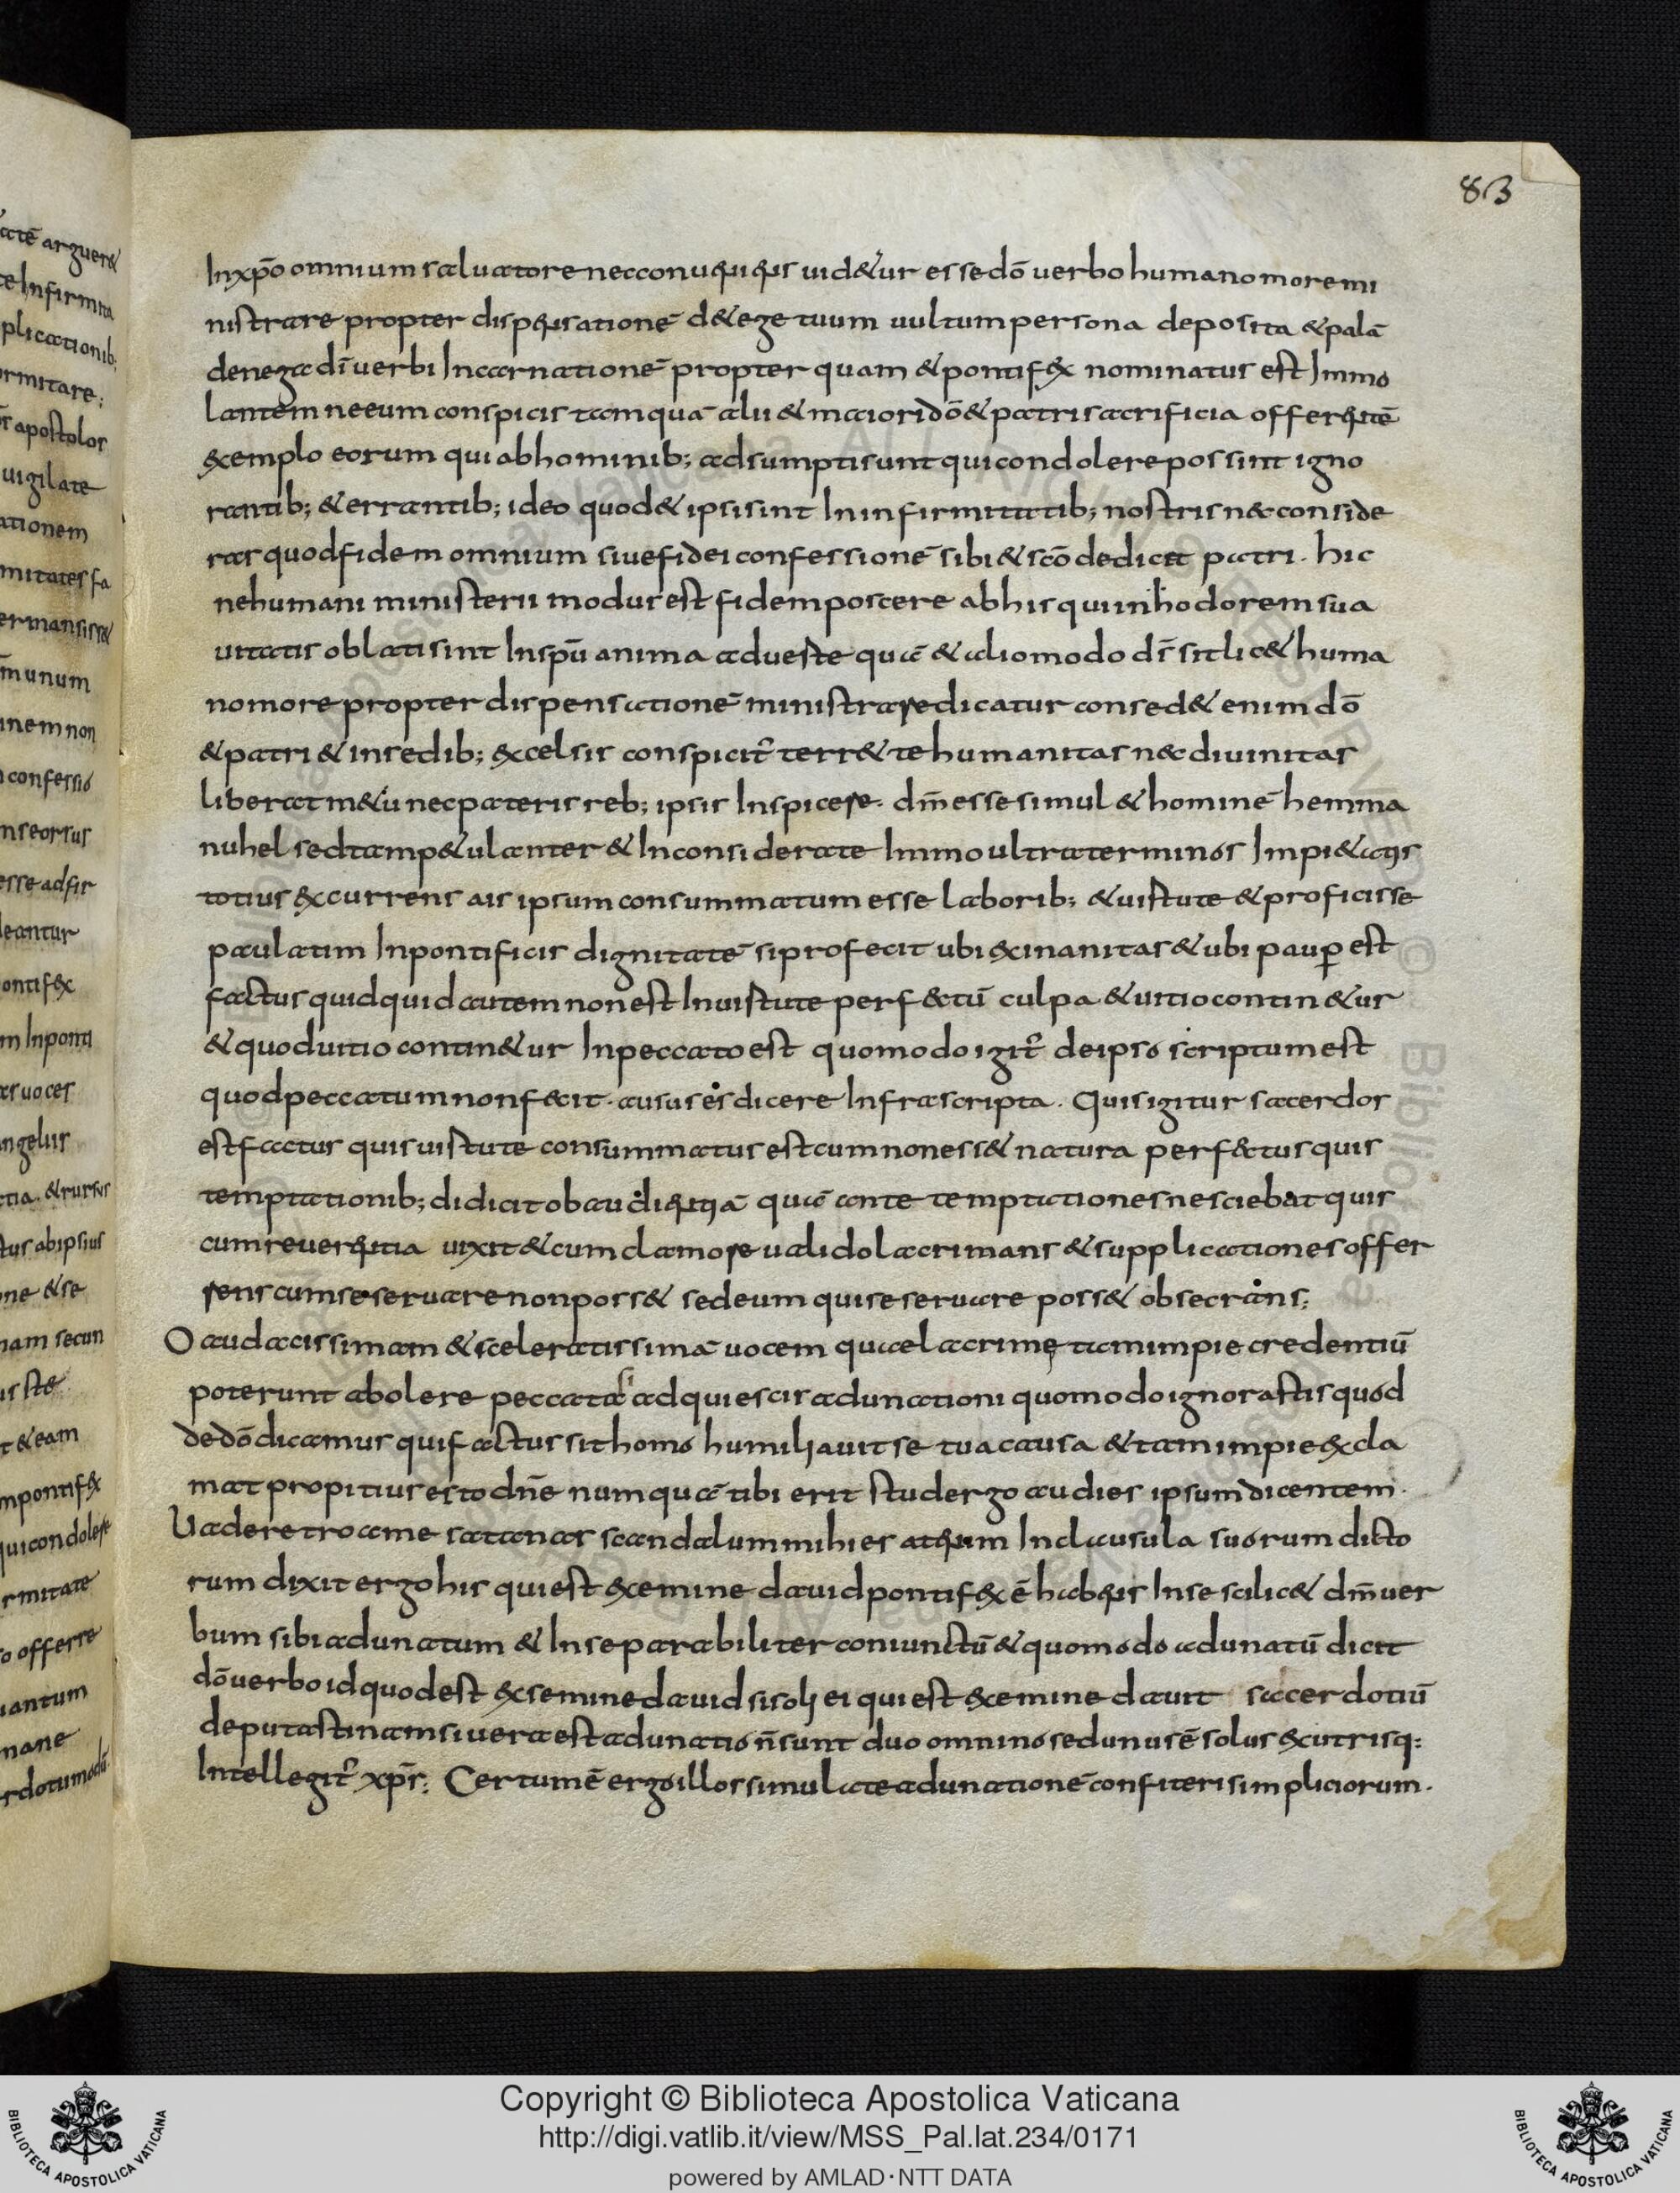 83
Inxp̄o omnium saluatore nec conueniens uid&ur esse dō uerbo humano more mi
nistrare propter dispensationē d&ege tuum uultum persona deposita &palā
denega dī uerbi Incarnationē propter quam &pontifex nominatus est Immo
lantem ne eum conspicis tamquā alii & maiori dō & patri sacrificia offerentē
exemplo eorum qui abhominib; adsumpti sunt qui condolere possint igno
rantib; & errantib; ideo quod& ipsi sint In infirmitatib; nostris nec conside
ras quod fidem omnium siue fidei confessionē sibi & scō dedicat patri. hic
ne humani ministerii modus est fidem poscere abhis qui inhodorem sua
uitatis oblati sint Inspū anima adueste quā & alio modo dī silic& huma
no more propter dispensationē ministrare dicatur consed& enim dō
& patri & insedib; excelsis conspicit̄ terr& te humanitas nec diuinitas
liberat m&u nec pateris reb; ipsis Inspicere. dm̄ esse simul & hominē hemma
nuhel sed tam p&ulanter & Inconsiderate Immo ultra terminos Impi&atis
totius excurrens ais ipsum consummatum esse laborib; & uirtute & proficisse
paulatim Inpontificis dignitatē si profecit ubi exinanitas & ubi paup̄ est
factus quidquid autem non est Inuirtute perfectū culpa & uitio contin&ur
& quod uitio contin&ur Inpeccato est quomodo igit̄ de ipso scriptum est
quod peccatum non fecit. ausus es dicere Infrascripta. Quis igitur sacerdos
est factus quis uirtute consummatus est cum non ess& natura perfectus quis
temptationib; didicit obaudientiā quā ante temptationes nesciebat quis
cum reuerentia uixit & cum clamore ualido lacrimans & supplicationes offer
rens cum se seruare non poss& sed eum qui se seruare poss& obsecrans;
O audacissimam & sceleratissimā uocem quae lacrimę tam impie credentiū
poterunt abolere peccata adquiescis adunationi quomodo ignorastis quod
dedō dicamus qui factus sit homo humiliauit se tua causa & tam impie excla
mat propitius esto dn̄e numquā tibi erit stud ergo audies ipsum dicentem.
Uade retro a me satanas scandalum mihi es atenim Inclausula suorum dicto
rum dixit ergo his qui est exemine dauid pontifex ē habens Inse scilic& dm̄ uer
bum sibi adunatum & Inseparabiliter coniunctū & quomodo adunatū dicit
dō uerbo id quod est ex semine dauid si soli ei qui est exemine dauit sacerdotiū
deputasti nam si uera est adunatio n̄ sunt duo omnino sed unus ē solus ex utrisq:
Intellegit̄ xp̄s; Certum ē ergo illos simulate adunationē confiteri simpliciorum.
Copyright © Biblioteca Apostolica Vaticana
http://digi.vatlib.it/view/MSS_Pal.lat.234/0171
powered by AMLAD·NTT DATA